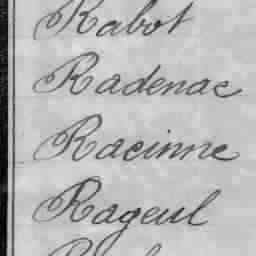 Rabot
Radenac
Racinne
Rageul